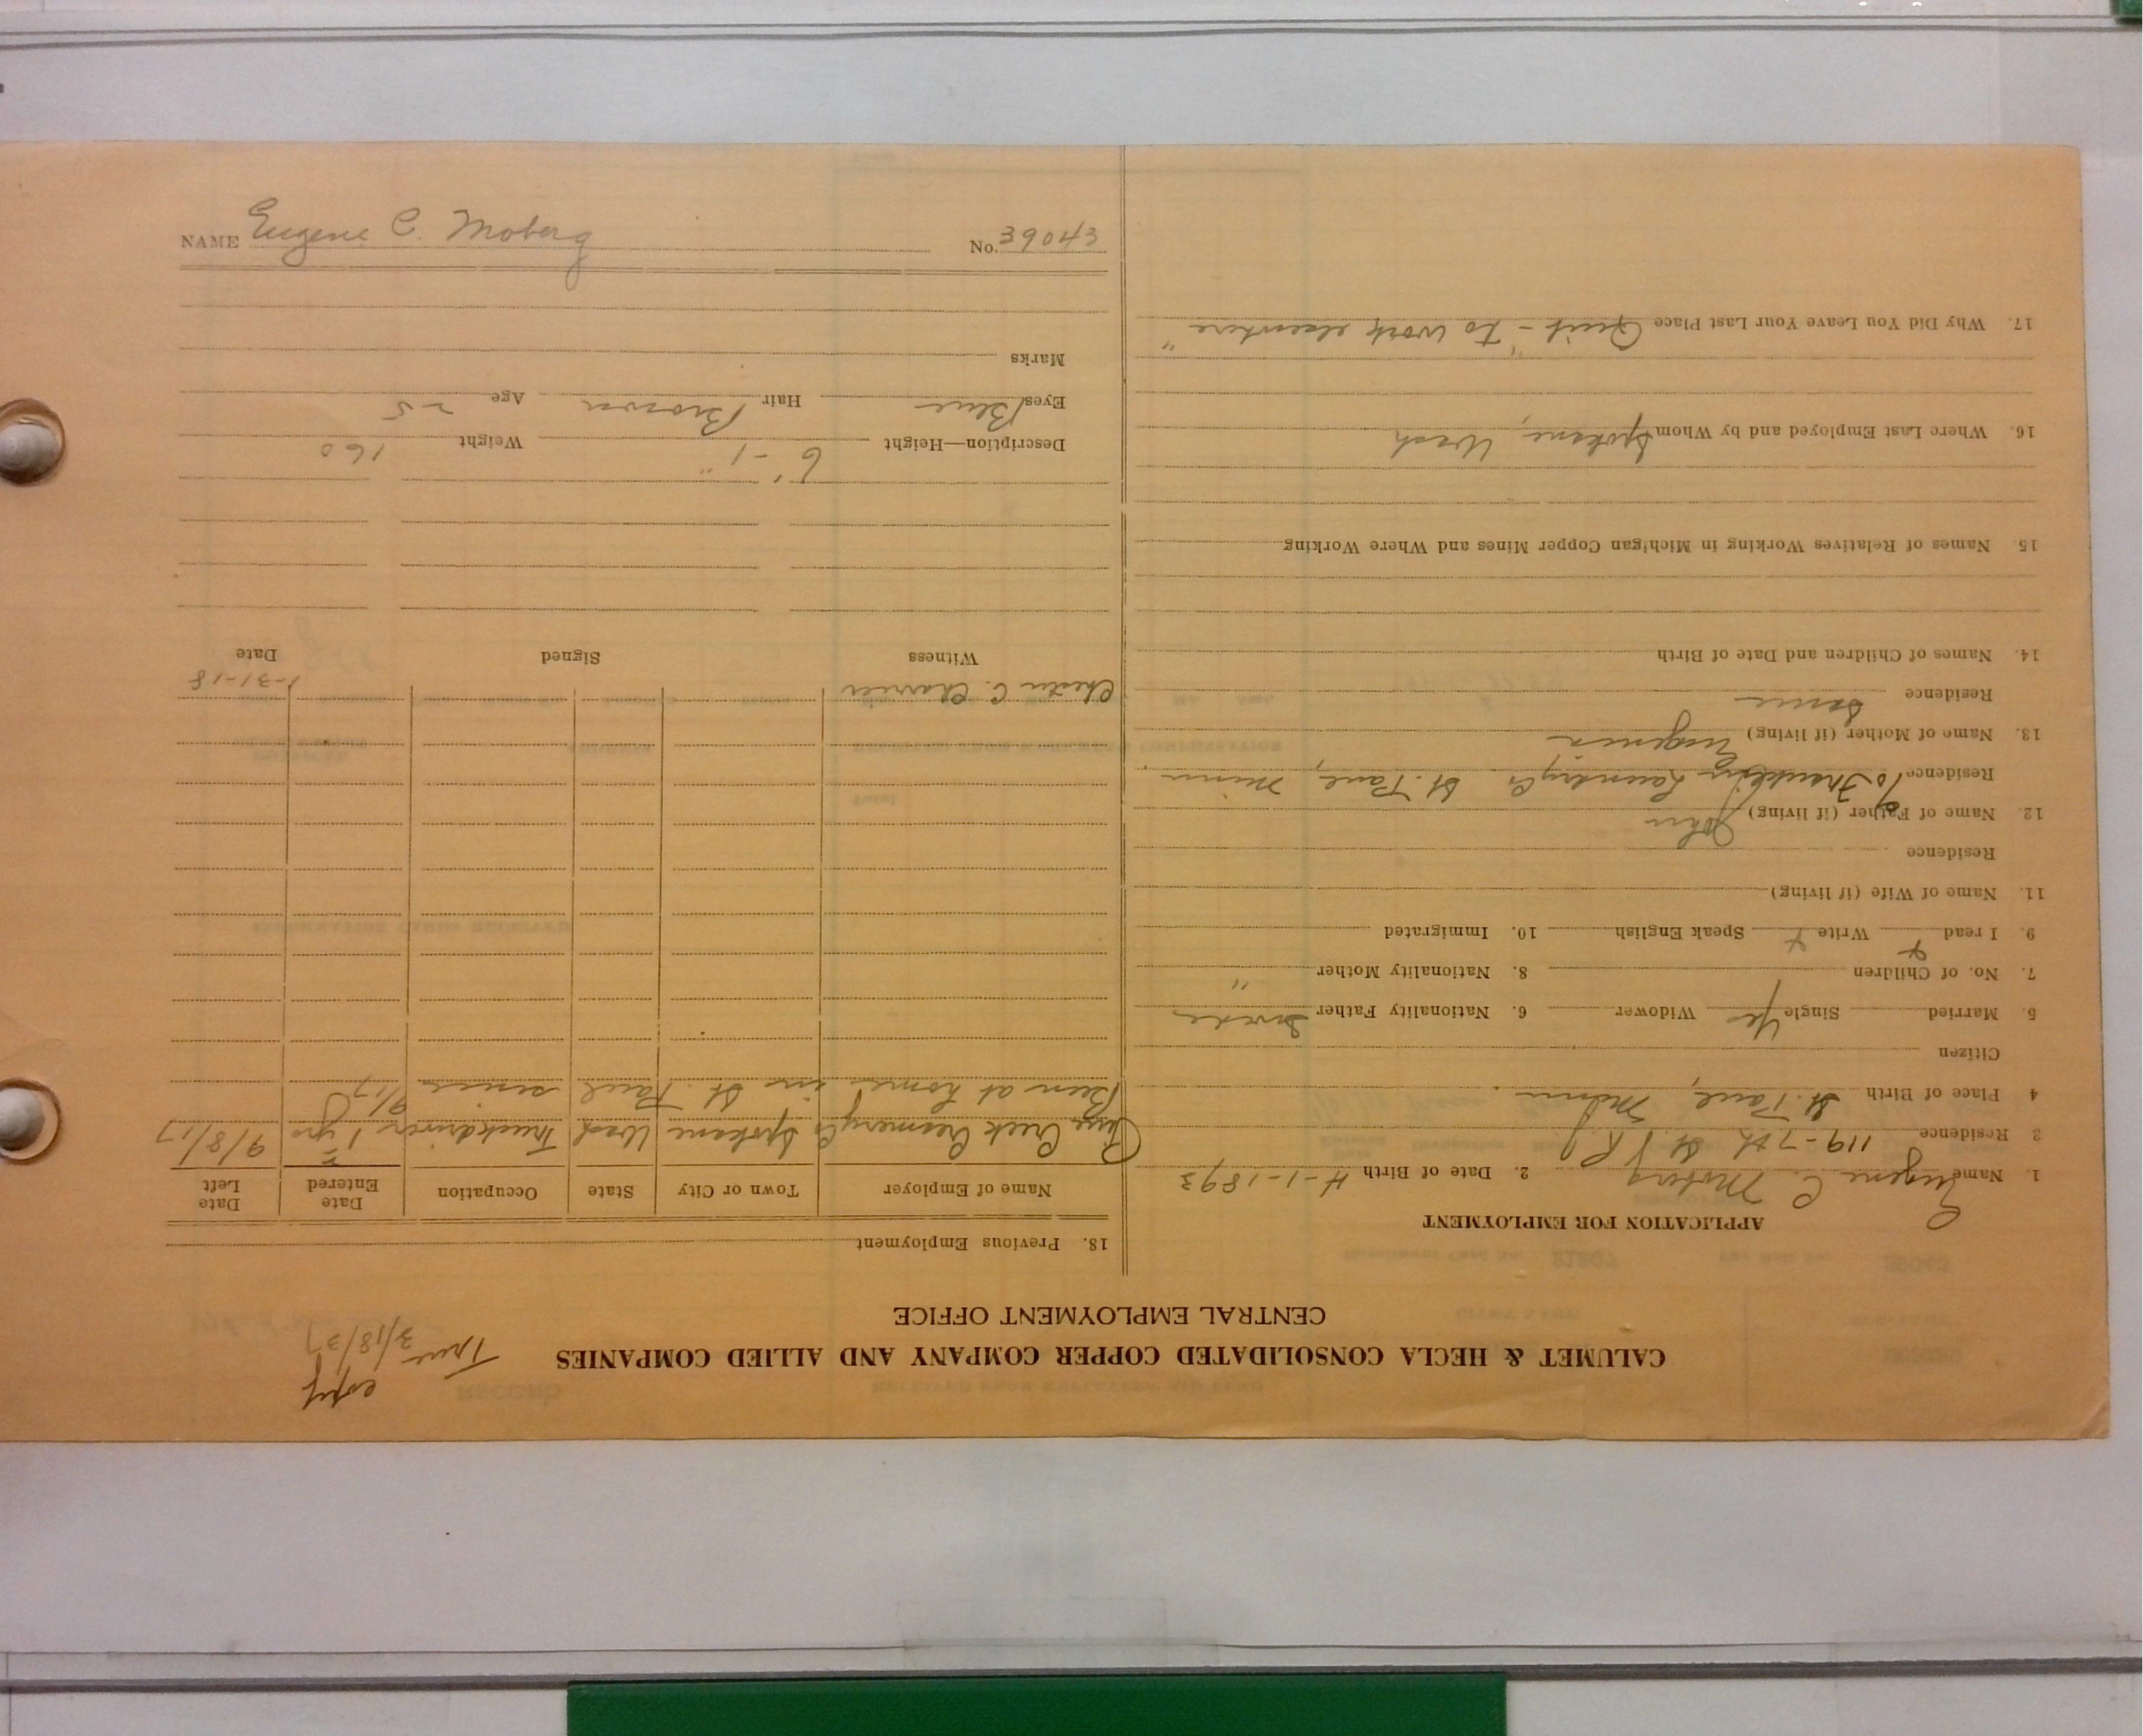 CALUMET & HECLA CONSOLIDATED COPPER COMPANY AND ALLIED COMPANIES
CENTRAL EMPLOYMENT OFFICE
True copy
3/18/37
APPLICATION FOR EMPLOYMENT
1. Name Eugene C. Moberg 2. Date of Birth 4-1-1893
3 Residence 119-7th St
4 Place of Birth St. Paul, Minn
Citizen
5. Married Single Yes Widower 6. Nationality Father Swede
7. No. of Children 8. Nationality Mother "
9. I read + Write + Speak English 10. Immigrated
11. Name of Wife (if living)
Residence
12. Name of Father (if living) John
Residence % Laundry Co St. Paul, Minn
13. Name of Mother (if living) Eugenia
Residence Same
14. Names of Children and Date of Birth
15. Names of Relatives Working in Michigan Copper Mines and Where Working
16. Where Last Employed and by Whom Spokane, Wash
17. Why Did You Leave Your Last Place Quit - "to work elsewhere"
18. Previous Employment
Name of Employer Town or City State Occupation Date Entered Date Left
Creek Creamery Co Spokane Wash Truckdriver 1 yrs 9/8/17
Been at home in St. Paul since 9/17
Chester C. 1-31-18
Witness Signed Date
Description—Height 6'-1" Weight 160
Eyes Blue Hair Brown Age 25
Marks
NAME Eugene C. Moberg No. 39043